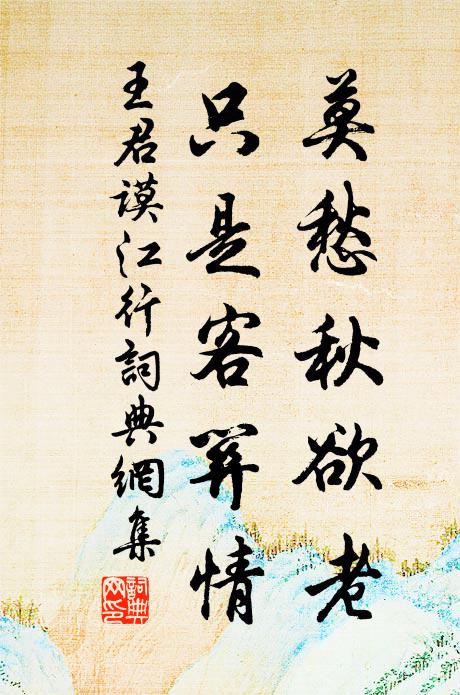 莫愁秋欲老
只是客關情
王君謨江行詞典網集
詞典